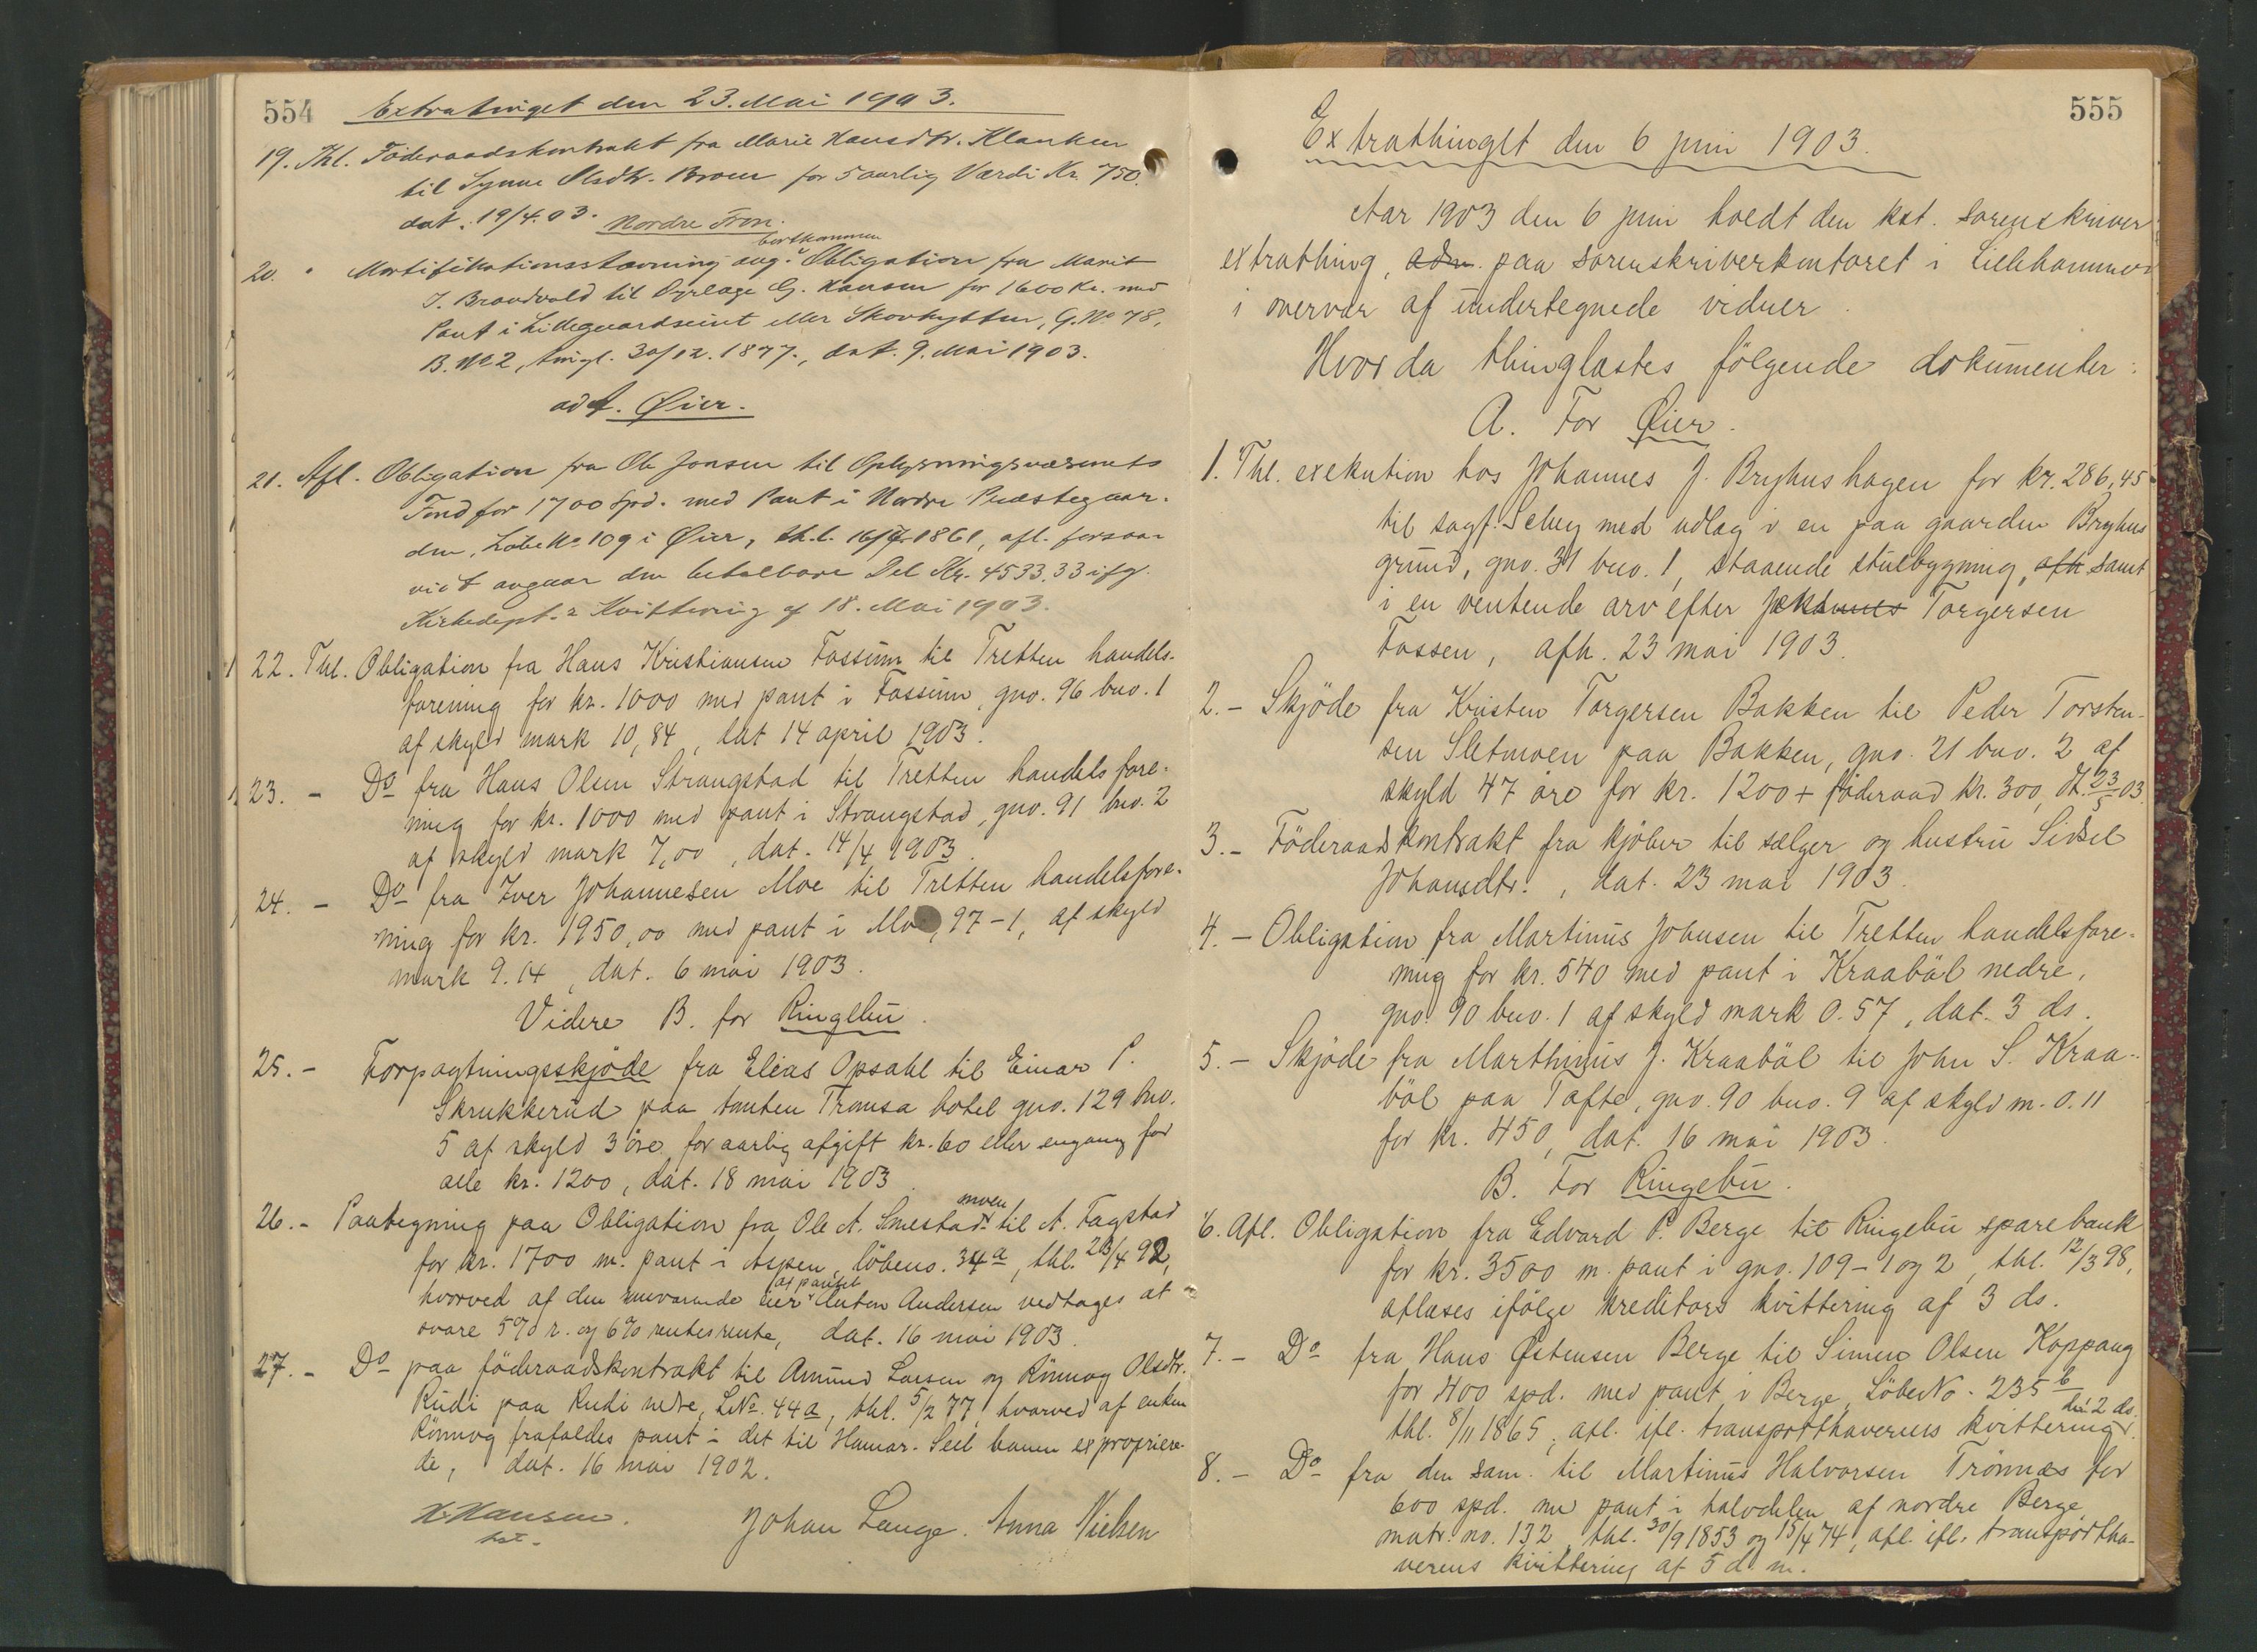 554
Extratinget den 23. Mai 1903.
19. Thl. Föderaadskontrakt fra Marie Hansdtr. Klanken
til Synne Olsdtr. Broen for 5 aarlig Værdi Kr. 750.
dat. 19/4. 03. Nordre Fron.
bortkommen
20. " Mortifikationsstævning ang. Obligation fra Marit
J. Brandvold til Dyrlæge G. Hansen for 1600 Kr. med
Pant i Lillegaardseiet eller Skovhytten, G. No 78,
B. No 2, tingl. 30/12. 1877., dat. 9. Mai 1903.
ad A. Øier.
21. Afl. Obligation fra Ole Jonsen til Oplysningsvæsenets
Fond for 1700 Spd. med Pant i Nordre Præstegaar-
den, Løbe No 109 i Øier, th.l. 1861, afl. forsaa-
vidt angaar den betalbare Del Kr. 4533.33 ifg.
Kirkedept.s Kvittering af 18. Mai 1903.
22. Thl. Obligation fra Hans Kristiansen Fossum til Tretten handels-
forening for kr. 1000 med pant i Fossum, gno. 96 bno. 1
af skyld mark 10,84, dat 14 april 1903.
23. - Do fra Hans Olsen Strangstad til Tretten handelsfore-
ning for kr. 1000 med pant i Strangstad, gno. 91 bno. 2
af skyld mark 7,00, dat. 14/4 1903.
24. - Do fra Iver Johannesen Moe til Tretten handelsfore-
ning for kr. 1950,00 med pant i Mo, 97-1, af skyld
mark 9.14, dat. 6 mai 1903.
Videre B. for Ringebu.
25. - Forpagtningsskjøde fra Elias Opsahl til Einar P.
Skrukkerud paa tomten Tromsa hotel gno. 129 bno.
5 af skyld 3 öre for aarlig afgift kr. 60 eller engang for
alle kr. 1200, dat. 18 mai 1903.
moen
26. - Paategning paa Obligation fra Ole A. Smestad til A. Fagstad
for kr. 1700 m. pant i Aspen, löbeno. 34a, thl. 23/4 92,
af pantet
hvorved af den nuværende eier Anton Andersen vedtages at
svare 5% r. og 6% rentesrente, dat. 16 mai 1903.
27. - Do paa föderaadskontrakt til Amund Larsen og Rönnog Olsdtr.
Rudi paa Rudi nedre, LNo. 44a, thl. 5/2 77, hvorved af enken
Rönnog frafaldes pant i det til Hamar-Sell banen expropriere-
de, dat. 16 mai 1902.
H. Hansen. Johan Lange. Anna Nielsen
kst.
555
Extrathinget den 6 juni 1903.
Aar 1903 den 6 juni holdt den kst. sorenskriver
extrathing, adm. paa sorenskriverkontoret i Lillehammer
i overvær af undertegnede vidner.
Hvor da thinglæstes fölgende dokumenter:
A. For Øier.
1. Thl. exekution hos Johannes J. Bryhushagen for kr. 286,45
til sagf. Schey med udlæg i en paa gaarden Bryhus
grund, gno. 31 bno. 1, staaende stuebygning, afh samt
i en ventende arv efter Johannes Torgersen
Fossen, afh. 23 mai 1903.
2. - Skjöde fra Kristen Torgersen Bakken til Peder Torsten-
sen Sletmoen paa Bakken, gno. 21 bno. 2 af
skyld 47 öre for kr. 1200 + föderaad kr. 300, dt. 23/5 03.
3. - Föderaadskontrakt fra kjöber til sælger og hustru Sidsel
Johansdtr., dat. 23 mai 1903.
4. - Obligation fra Martinus Johnsen til Tretten handelsfore-
ning for kr. 540 med pant i Kraaböl nedre,
gno. 90 bno. 1 af skyld mark 0.57, dat. 3 ds.
5. - Skjöde fra Marthinus J. Kraaböl til John S. Kraa-
böl paa Tofte, gno. 90 bno. 9 af skyld m. 0.11
for kr. 450, dat. 16 mai 1903.
B. For Ringebu.
6. Afl. Obligation fra Edvard P. Berge til Ringebu sparebank
for kr. 3500 m. pant i gno. 109-1 og 2, thl. 12/3 98,
aflæses ifölge kreditors kvittering af 3 ds.
7. - Do fra Hans Østensen Berge til Simen Olsen Koppang
for 400 spd. med pant i Berge, LöbeNo. 235 b
2 ds.
thl. 8/11 1865, afl. ifl. transporthaverens kvittering
8. - Do fra den sam. til Martinus Halvorsen Trönnæs for
600 spd. m pant i halvdelen af nordre Berge
matr. no. 132, thl. 30/9 1853 og 15/4 74, afl. ifl. transportha-
verens kvittering af 5 d. m.